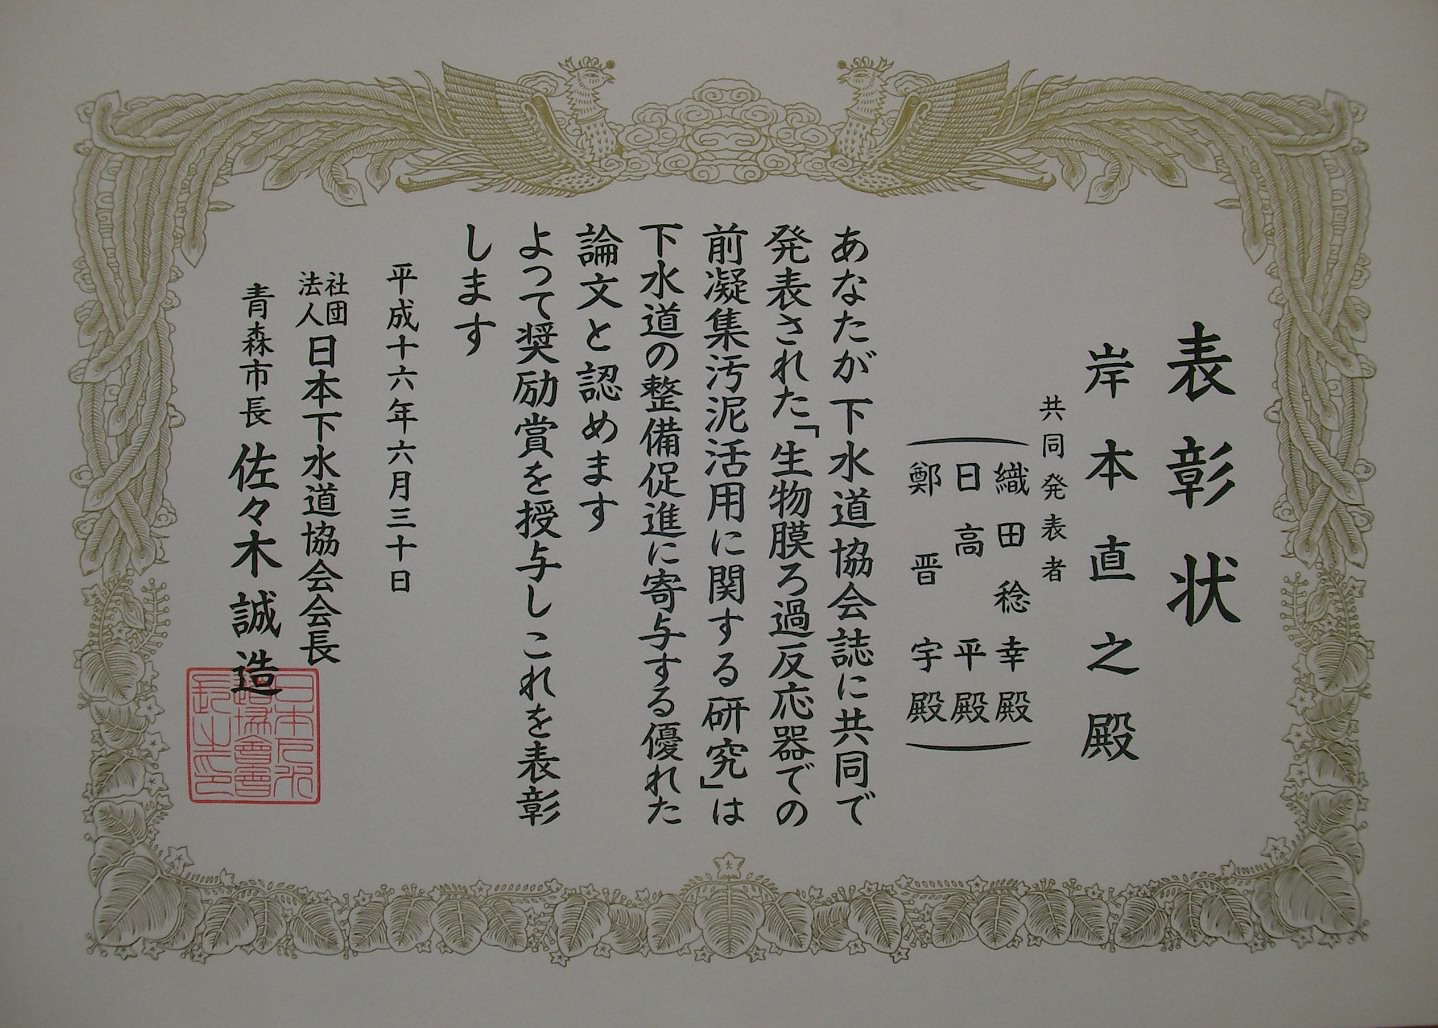 表彰状
岸本直之殿
共同発表者
織田稔幸殿
日高平殿
鄭晋宇殿
あなたが下水道協会誌に共同で
発表された「生物膜ろ過反応器での
前凝集汚泥活用に関する研究」は
下水道の整備促進に寄与する優れた
論文と認めます
よって奨励賞を授与しこれを表彰
します
平成十六年六月三十日
社団法人日本下水道協会会長
青森市長佐々木誠造